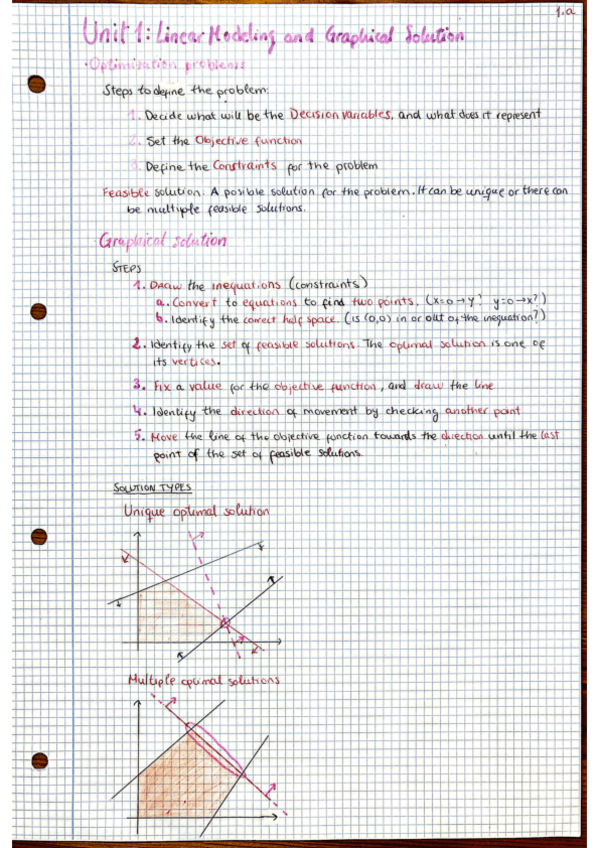 1.a
Unit 1: Linear Modeling and Graphical Solution
· Optimization problems
Steps to define the problem:
1. Decide what will be the Decision variables, and what does it represent
2. Set the Objective function
3. Define the Constraints for the problem
Feasible solution: A posible solution for the problem. It can be unique or there can
be multiple feasible solutions.
· Graphical solution
STEPS
1. Draw the inequations (constraints)
a. Convert to equations to find two points. (x=0→y? y=0→x?)
b. Identify the correct half space. (is (0,0) in or out of the inequation?)
2. Identify the set of feasible solutions. The optimal solution is one of
its vertices.
3. Fix a value for the objective function, and draw the line
4. Identify the direction of movement by checking another point
5. Move the line of the objective function towards the direction until the last
point of the set of feasible solutions.
SOLUTION TYPES
Unique optimal solution
Multiple optimal solutions